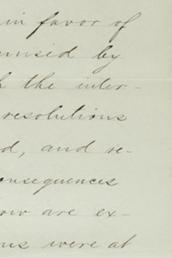 in favor of
by
the inter-
resolutions
d, and re-
onsequences
ow are ex-
ns were at